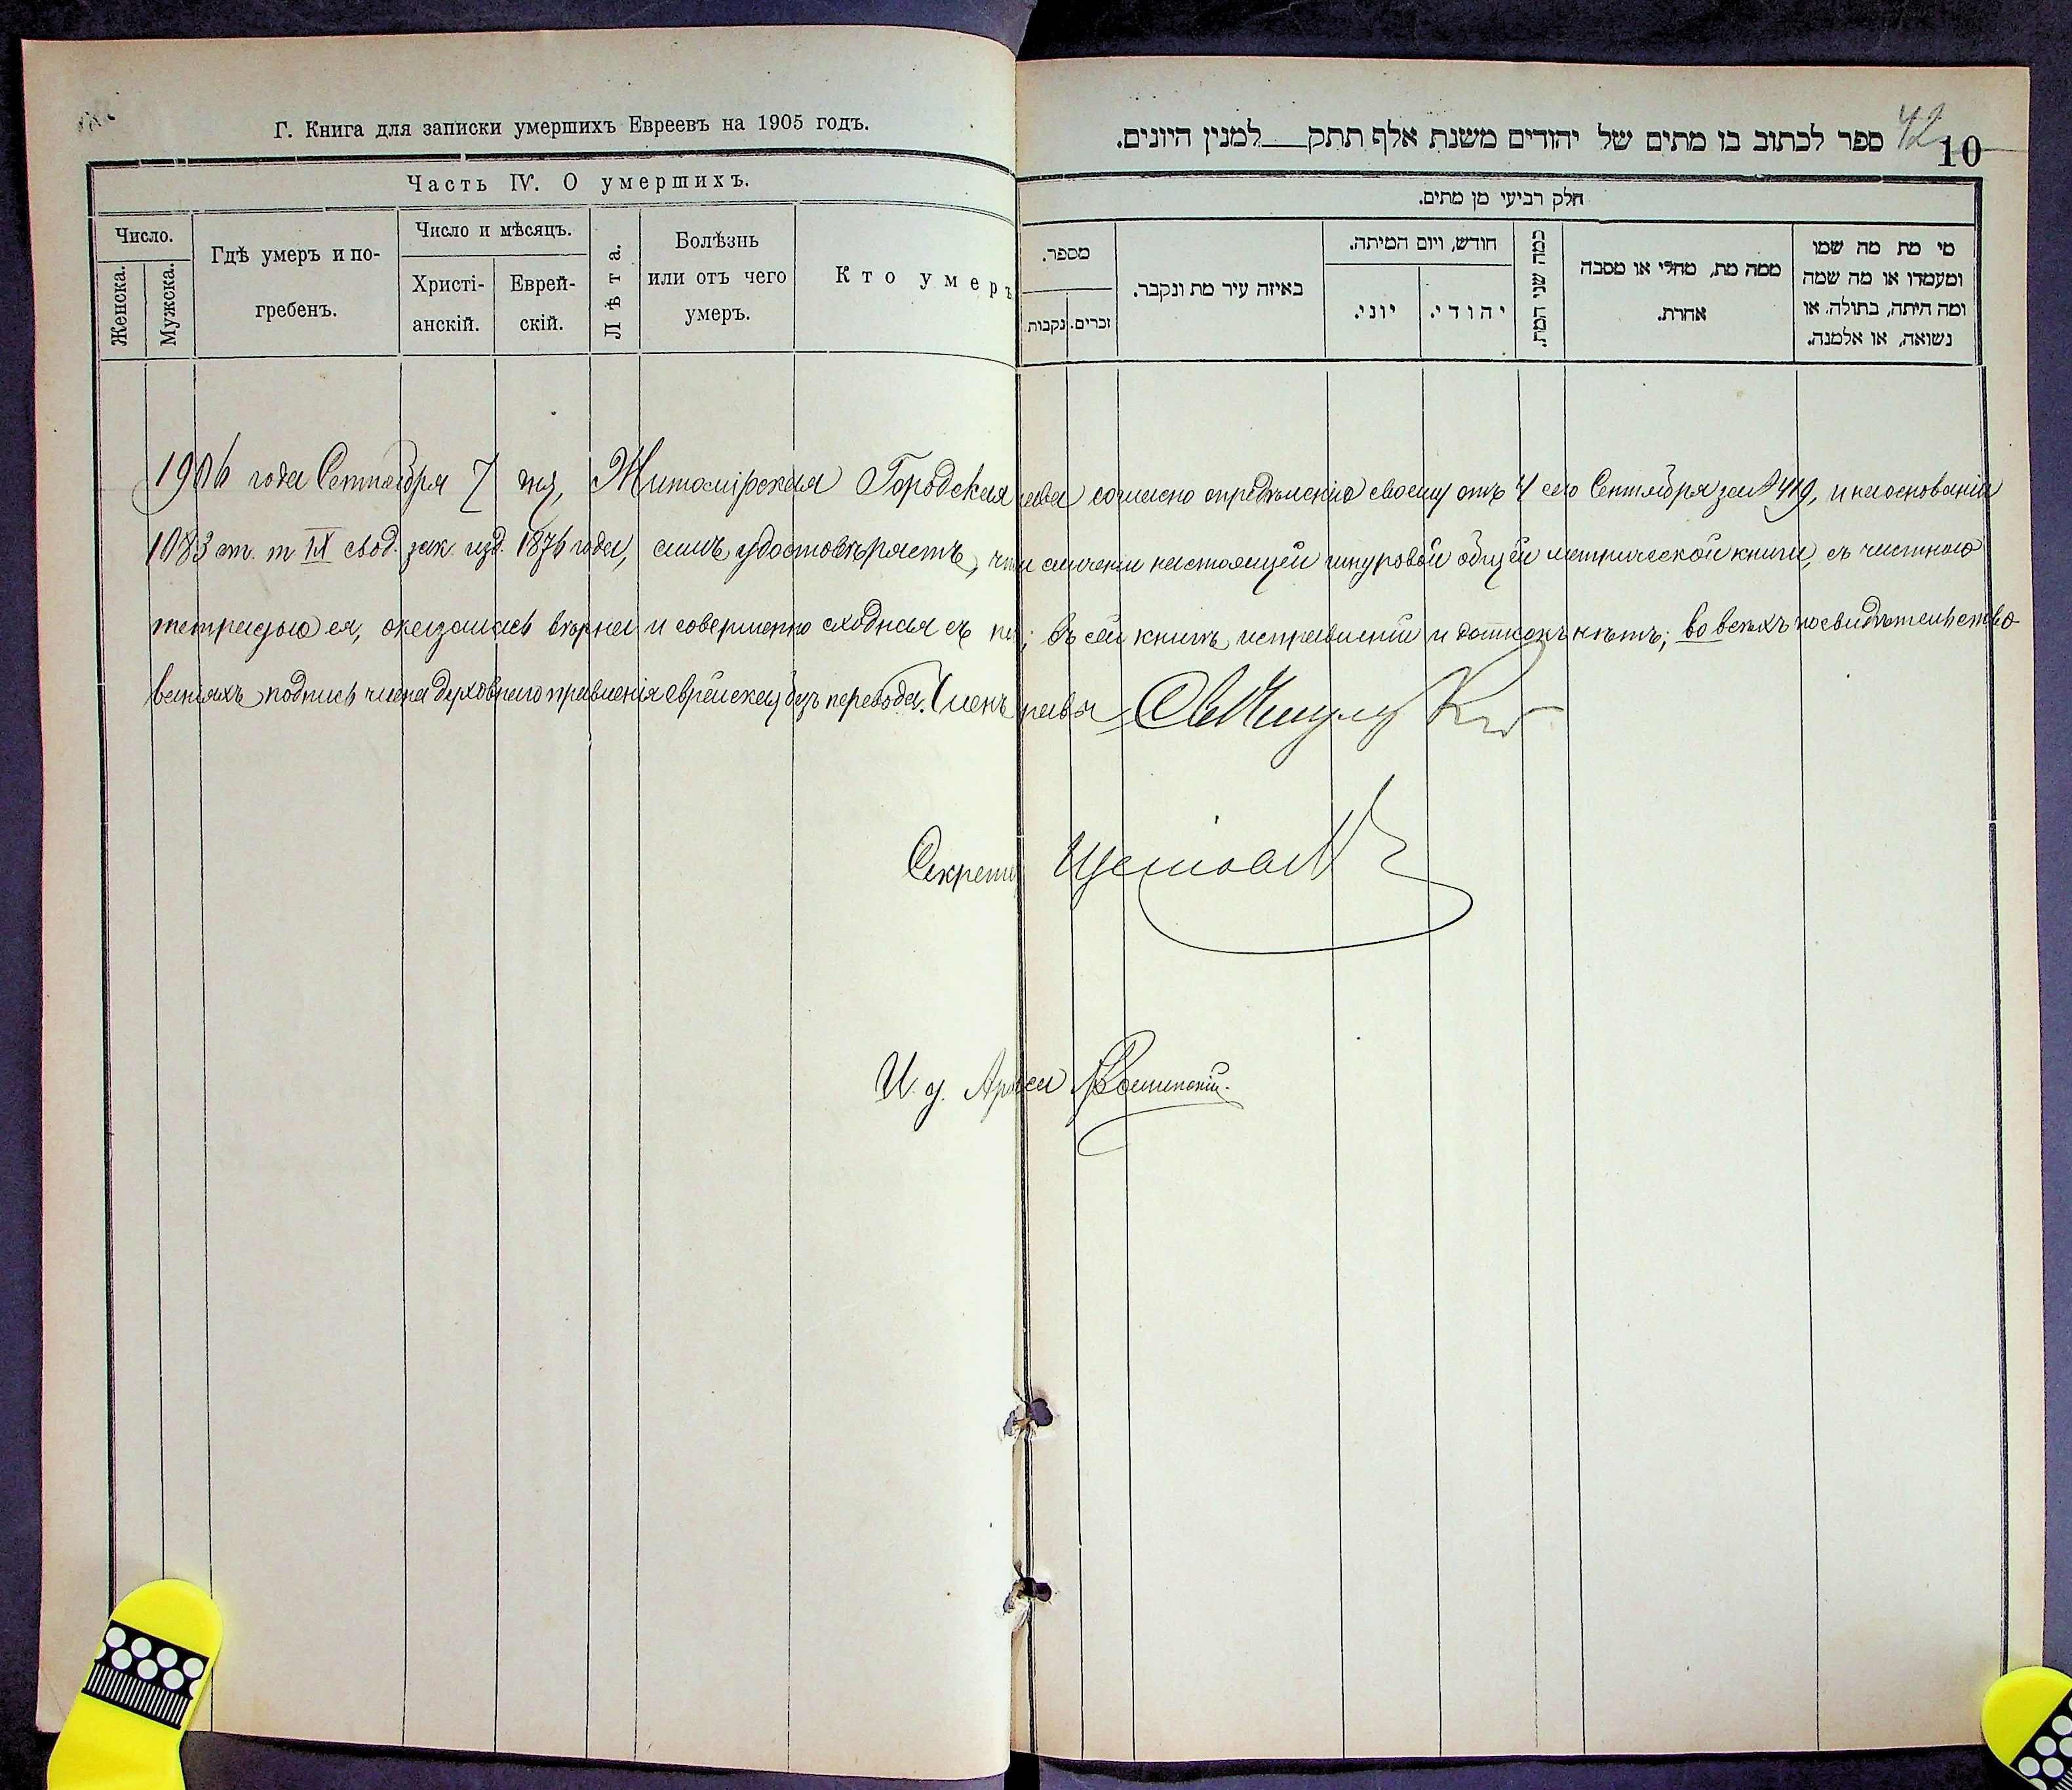 Г. Книга для записки умершихъ Евреевъ на 1905 годъ.
Часть IV. О умершихъ.
Число.
Женска.
Мужска.
Гдѣ умеръ и по-
гребенъ.
Число и мѣсяцъ.
Христі-
анскій.
Еврей-
скій.
Лѣта.
Болѣзнь
или отъ чего
умеръ.
Кто умеръ
ספר לכתוב בו מתים של יהודים משנת אלף תתק למנין היונים.
42
10
חלק רביעי מן מתים.
מספר.
נקבות
זכרים.
באיזה עיר מת ונקבר.
חודש, ויום המיתה.
יוני.
יהודי.
כמה שני המת.
ממה מת, מחלי או מסבה
אחרת.
מי מת מה שמו
ומעמדו או מה שמה
ומה היתה, בתולה, או
נשואה, או אלמנה.
1906 года Сентября 7 дня, Житомірская Городская согласно опредѣленію своему отъ 4 сего Сентября за № 419, и на основаніи
1083 ст. т IX свод. зак. изд. 1876 года, симъ удостовѣряетъ, сличеніи настоящей шнуровой общей метрической книги, съ частною
тетрадью ея, оказалась вѣрна и совершенно сходная съ въ сей книгѣ исправленій и нѣтъ; во всѣхъ посвидѣтельство
ваніяхъ подпись члена духовнаго правленія еврейская безъ перевода. Членъ
Секрета
И. д.